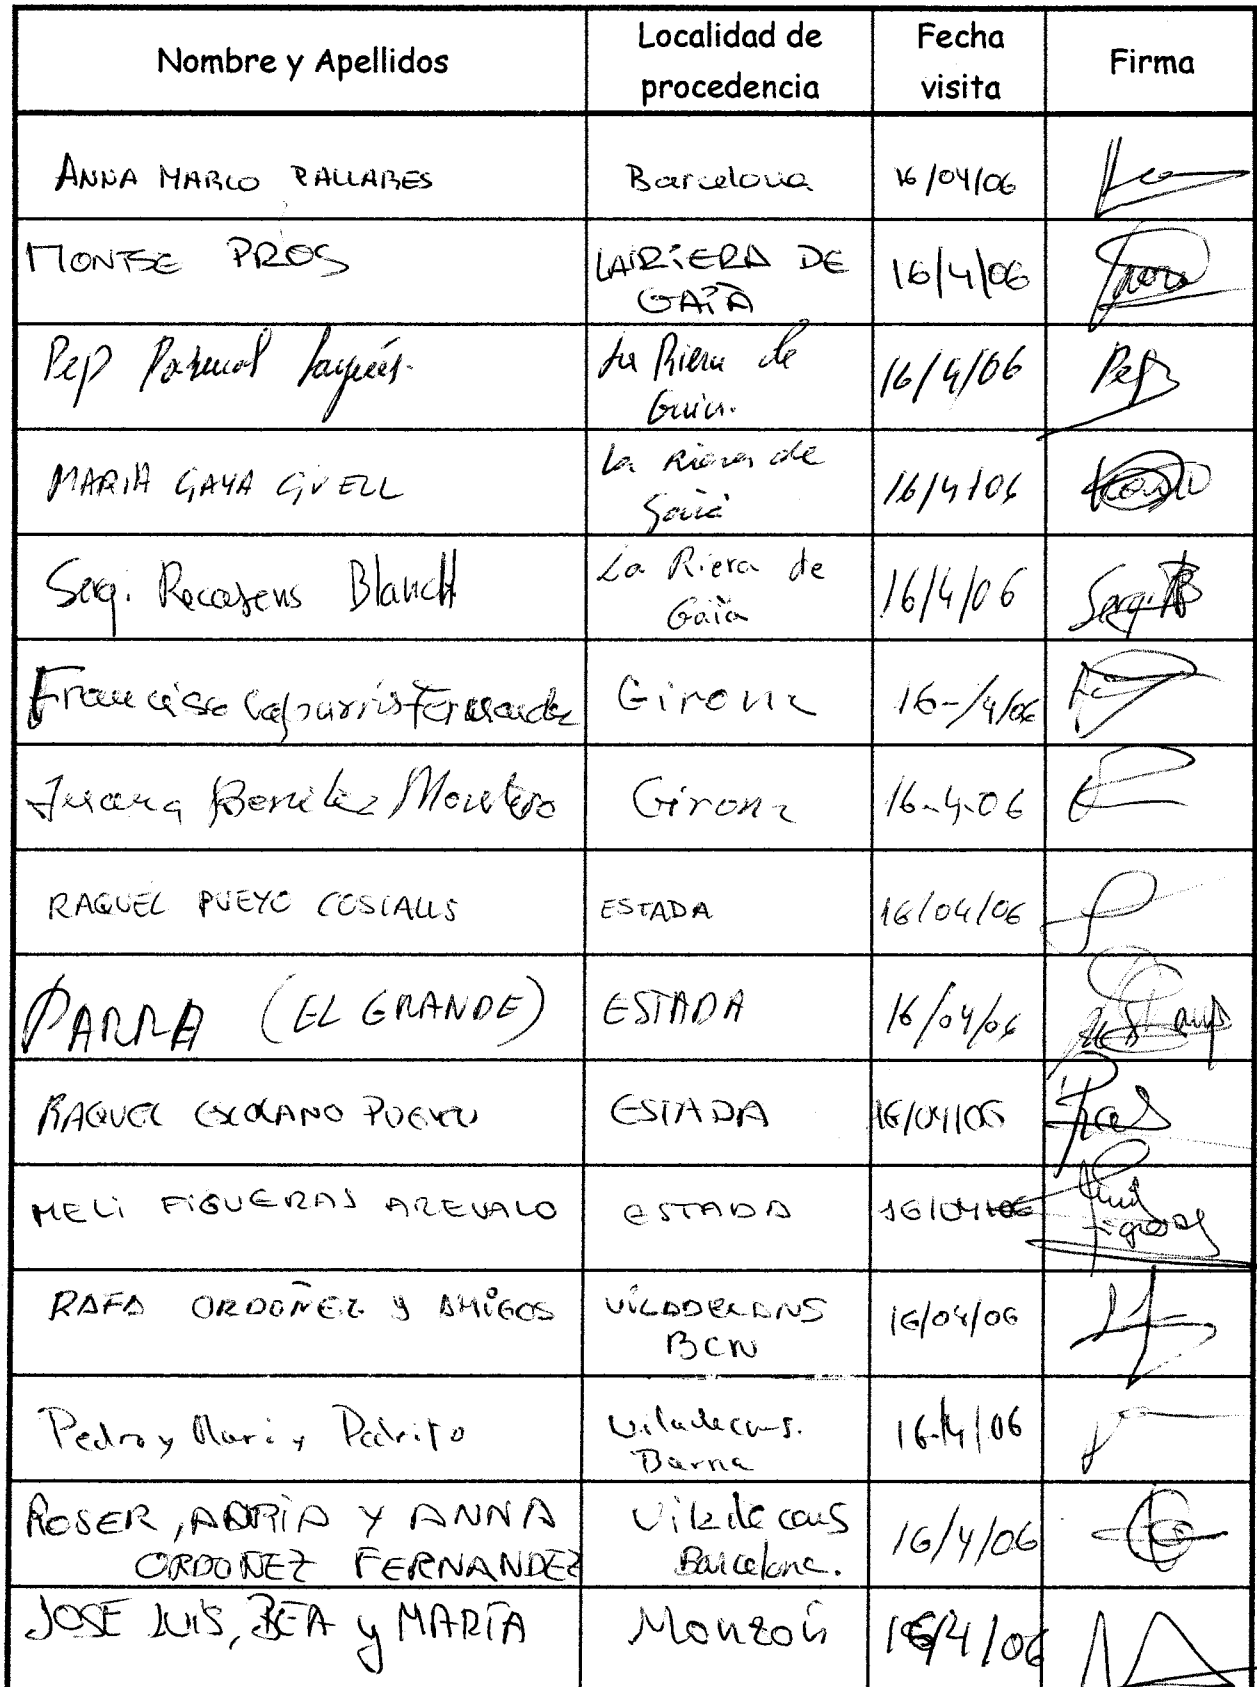 Nombre y Apellidos
Localidad de procedencia
Fecha visita
Firma
ANNA MARCO PALLARES Barcelona 16/04/06
MONTSE PROS LA RIERA DE GAIÀ 16/4/06
Pep Pascual 16/4/06 Pep
La Riera de Gaià.
MARIA GAYA GÜELL La Riera de Gaià 16/4/06
Sergi Recasens Blanch La Riera de Gaià 16/4/06 Sergi
Francisco Capurris Fernandez Girona 16-/4/06
Juana Benitez Montero Girona 16-4-06
RAQUEL PUEYO COSIALLS ESTADA 16/04/06
PARRA (EL GRANDE) ESTADA 16/04/06
RAQUEL ESCOLANO PUEYO ESTADA 16/04/06
MELI FIGUERAS AREVALO ESTADA 16/04/06
RAFA ORDOÑEZ y AMIGOS VILADECANS BCN 16/04/06
Pedro y Mari y Pedrito Viladecans. Barna 16-4/06
ROSER, ADRIÀ Y ANNA
ORDOÑEZ FERNANDEZ
Viladecans
Barcelona.
16/4/06
JOSE LUIS, BEA y MARÍA Monzón 16/4/06